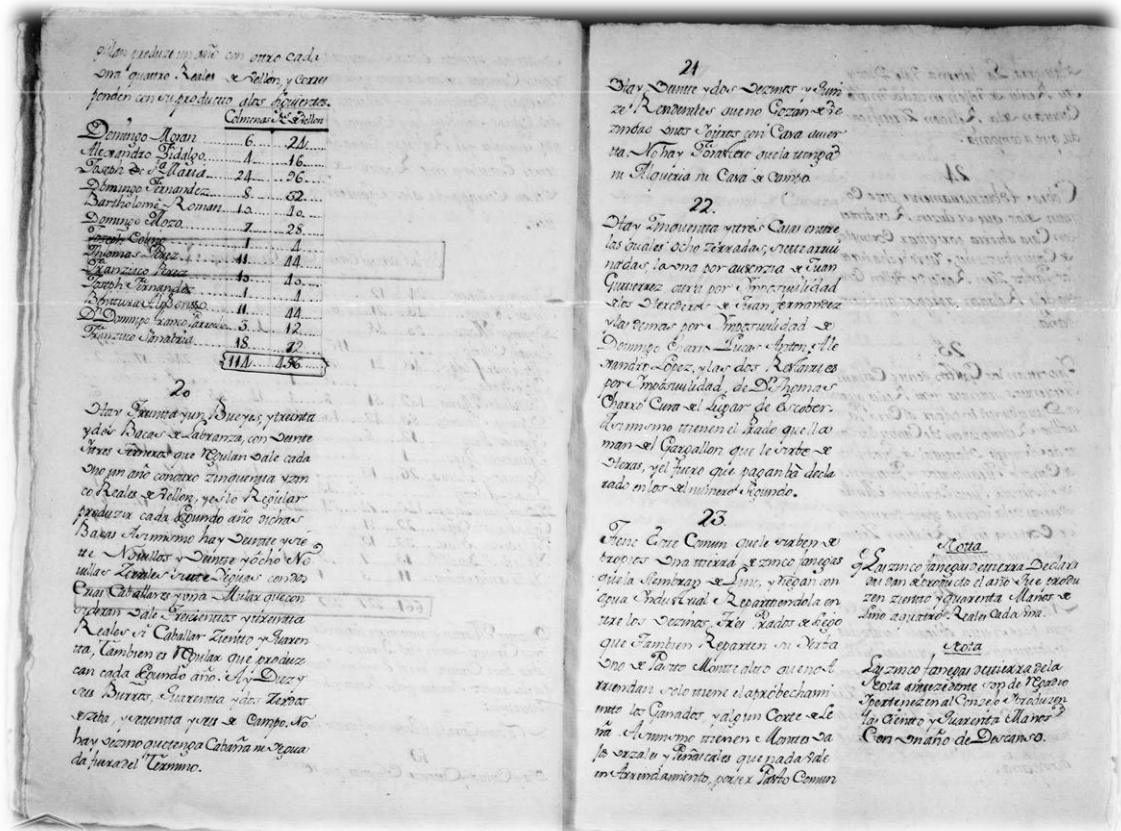 produze un año con otro cada
una quatro Reales de Vellon, y Corres
ponden con su producto alos siguientes.
Colmenas Rs. de Vellon
Domingo Moran 6 24
Alexandro Fidalgo 4 16
Joseph de Sta. Maria 24 96
Domingo Fernandez 8 32
Bartholome Roman 10 40
Domingo Mozo 7 28
Joseph 1 4
Thomas Perez 11 44
Franzisco Perez 10 40
Joseph Frnandez 1 4
Bentura Alphonso 11 44
Dn. Domingo Franco 3 12
Franzisco Sanabria 18 72
114 456
20
Hay Treinta y un Bueyes, y treinta
y dos Bacas de Labranza, con Veinte
terneros que Regulan Vale cada
Uno un año con otro zinquenta y zin
co Reales de Vellon, y es lo Regular
produzir cada segundo año dichas
Bacas Asimismo hay Veinte y sie
te Novillos y Veinte y ocho No
villas Zerriles siete Yeguas con dos
Crias Caballares y una Mular que con
sideran Vale Trescientos y treinta
Reales si Caballar Ziento y Quaren
ta, tambien es Regular que produz
can cada segundo año. Ay Diez y
seis Burras, Quarenta y dos Zerdos
de zeba, y setenta y seis de Campo. No
hay vecino que tenga Cabaña ni Yegua
da fuera del Termino.
21
Hay Veinte y dos Vezinos y Quin
ze Residentes que no Gozan de Ve
zindad unos y otros con Casa avier
ta. No hay que la tenga
ni Alqueria ni Casa de Campo.
22.
Hay Zinquenta y tres Casas entre
las quales ocho zerradas, siete arrui
nadas, la una por ausenzia de Juan
Gutierrez otra por Ymposivilidad
alos Herederos de Juan fernandez
y las demas por Ymposivilidad de
Domingo Lucas Anton, Ale
xandro Lopez, y las dos Restantes
por Ymposivilidad, de Dn. Thomas
Charro Cura del Lugar de Escober.
Asimismo tienen el Prado que lla
man del Gargallon que le sirbe de
Heras, y el fuero que pagan ba decla
rado en los del numero segundo.
23.
Tiene Este Comun que le sirben de
propios una tierra de zinco fanegas
que la siembran de Lino, y Riegan con
agua Yndustrial Repartiendola en
tre los Vezinos. Tres Prados de Riego
que tambien Reparten su Yerba
Uno de Pasto Monte alto que no A
rriendan solo tiene el aprobechami
ento los Ganados, y algun Corte de Le
ña Asimismo tienen Montes Va
jos y Peñascales que nada Vale
en Arrendamiento, por ser Pasto Comun
Notta
q Las zinco fanegas de tierra Declara
das dan de producto el año que produ
zen ziento y quarenta Manos de
Lino a quatro Reales cada una.
Nota
Las zinco fanegas de tierra dela
Nota antezedente son de Regadio
Pertenezen al Consejo Produzen
las Ciento y Quarenta Manos
Con un año de Descanso.